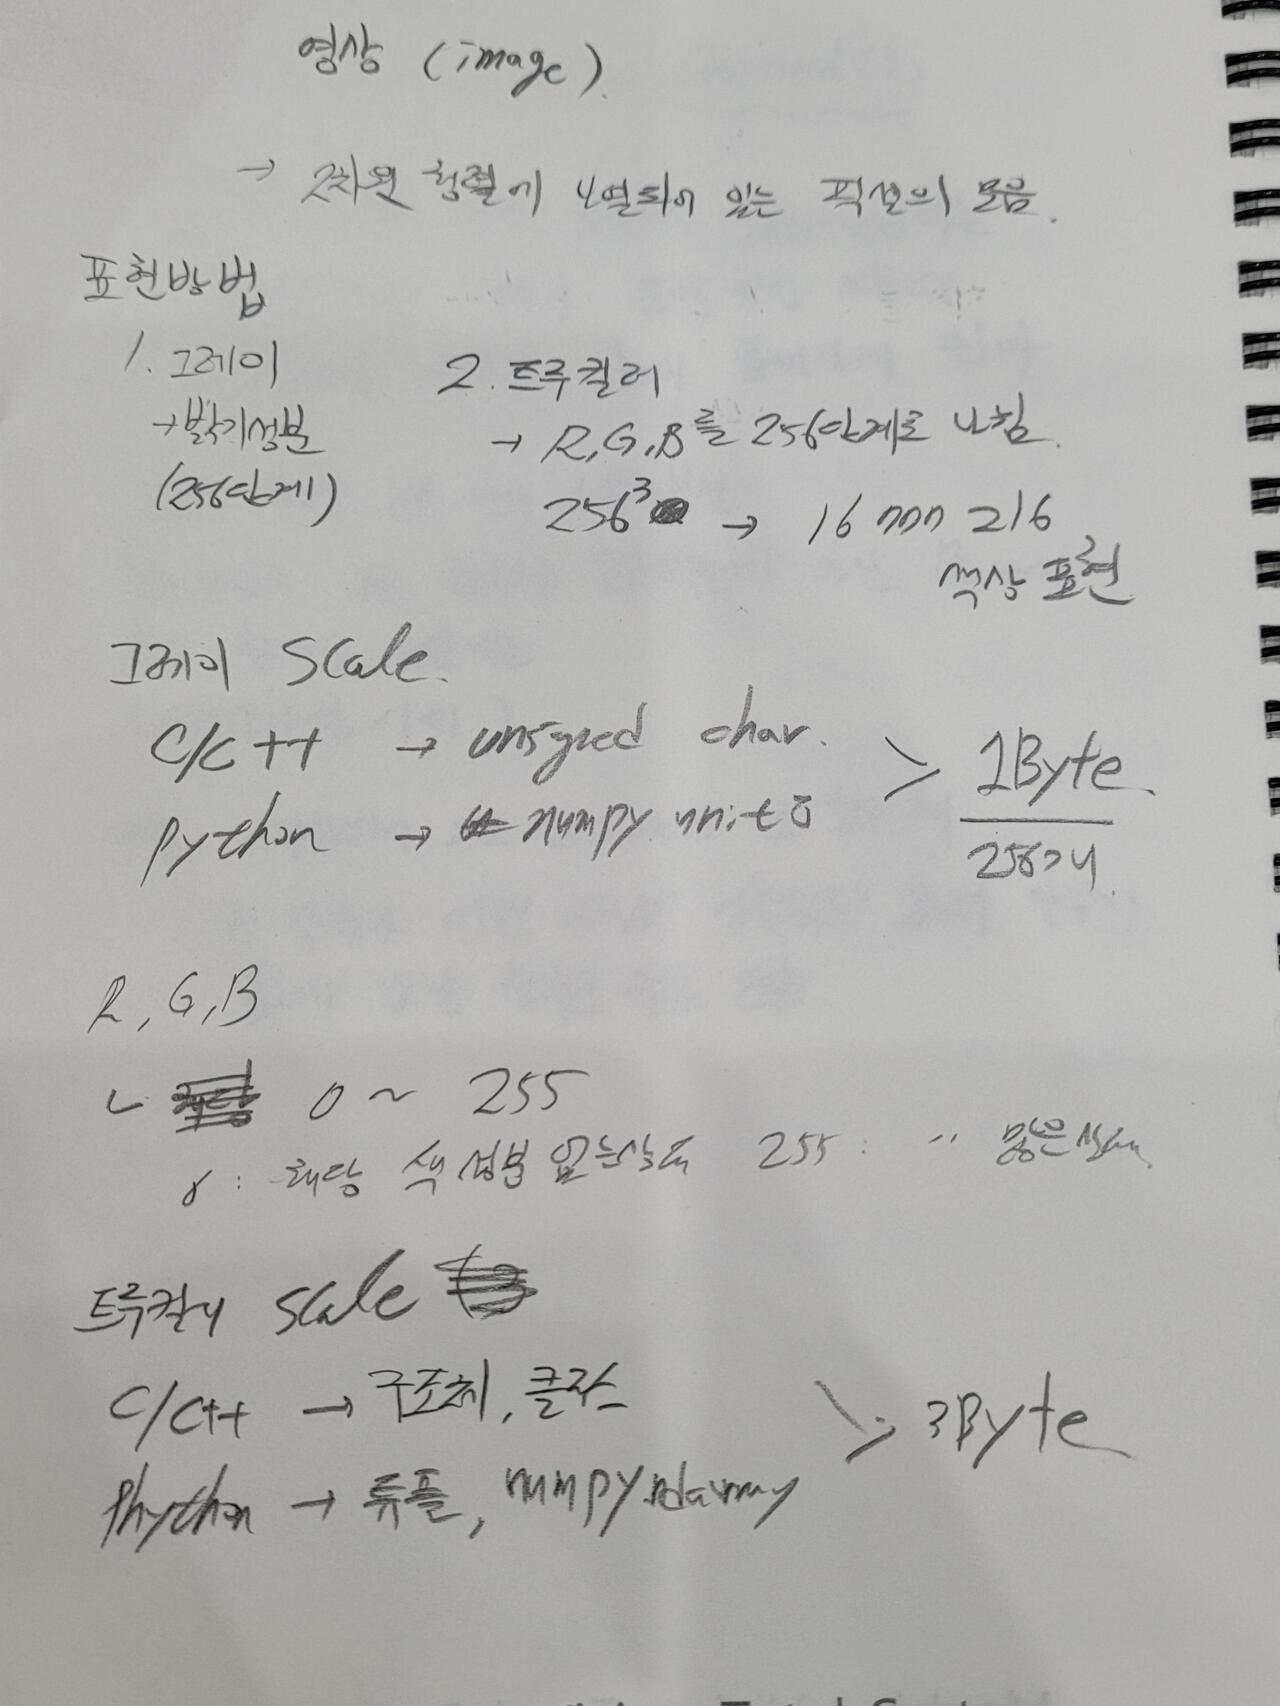 영상 (image).
→ 2차원 행렬에 나열되어 있는 픽셀의 모음.
표현방법
1. 그레이
→ 밝기성분
(256단계)
2. 트루컬러
→ R,G,B를 256단계로 나눔.
256³ → 16 777 216
색상 표현
그레이 scale.
C/C++ → unsigned char.
python → numpy unit8
> 1Byte.
256가지
R, G, B
0 ~ 255
0 : 해당 색 성분 없는 상태 255 : 〃
트루컬러 scale
C/C++ → 구조체, 클래스
Phython → 튜플, numpy.ndarray
> 3Byte